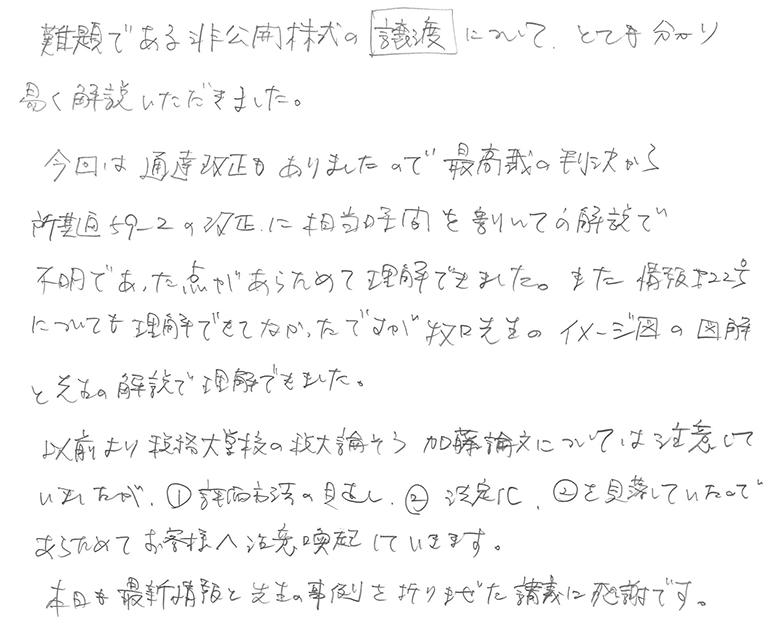 難題である非公開株式の譲渡について、とても分かり
易く解説いただきました。
今回は通達改正もありましたので最高裁の判決から
所基通59-2の改正に相当時間を割いての解説で
不明であった点があらためて理解できました。また情報第22号
についても理解できてなかったですが牧口先生のイメージ図の図解
と先生の解説で理解できました。
以前より税務大学校の税大論そう加藤論文については注意して
いましたが、①評価方法の見直し、②法定化、②を見落していたので
あらためてお客様へ注意喚起していきます。
本日も最新情報と先生の事例を折りまぜた講義に感謝です。